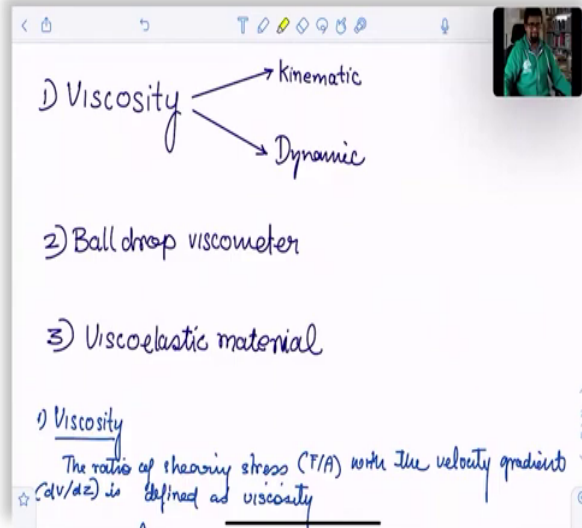 1) Viscosity
Kinematic
Dynamic
2) Ball drop viscometer
3) Viscoelastic material
1) Viscosity
The ratio of shearing stress (F/A) with the velocity gradient
(dv/dz) is defined as viscosity